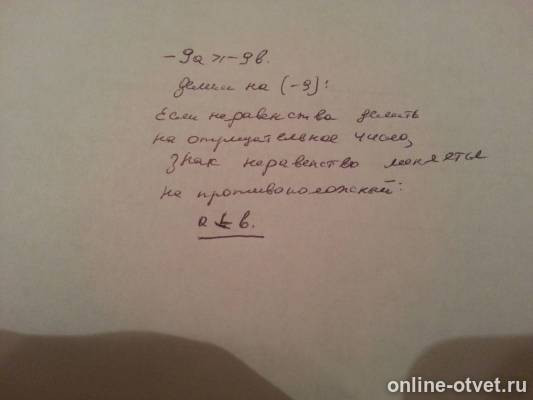 -9a ≥ -9b.
делим на (-9):
Если неравенства делить
на отрицательное число,
знак неравенство меняется
на противоположный:
a ≤ b.
online-otvet.ru